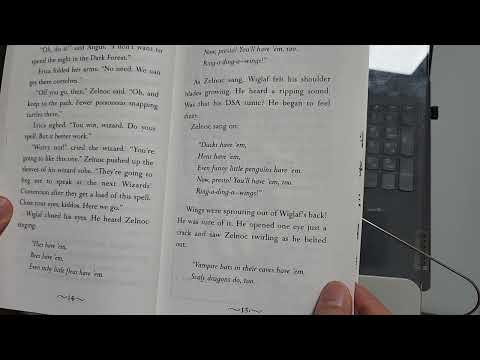 "Oh, do it!" said Angus. "I don't want to
spend the night in the Dark Forest."
Erica folded her arms. "No need. We can
get there ourselves."
"Off you go, then," Zelnoc said. "Oh, and
keep to the path. Fewer poisonous snapping
turtles there."
Erica sighed. "You win, wizard. Do your
spell. But it better work."
"Worry not!" cried the wizard. "You're
going to like this one." Zelnoc pushed up the
sleeves of his wizard robe. "They're going to
beg me to speak at the next Wizards'
Convention after they get a load of this spell.
Close your eyes, kiddos. Here we go."
Wiglaf closed his eyes. He heard Zelnoc
singing:
"Flies have 'em,
Bees have 'em,
Even itchy little fleas have 'em.
14
Now, presto! You'll have 'em, too.
Ring-a-ding-a—wings!"
As Zelnoc sang, Wiglaf felt his shoulder
blades growing. He heard a ripping sound.
Was that his DSA tunic? He began to feel
dizzy.
Zelnoc sang on:
"Ducks have 'em,
Hens have 'em,
Even funny little penguins have 'em.
Now, presto! You'll have 'em, too.
Ring-a-ding-a—wings!"
Wings were sprouting out of Wiglaf's back!
He was sure of it. He opened one eye just a
crack and saw Zelnoc twirling as he belted
out:
"Vampire bats in their caves have 'em.
Scaly dragons do, too.
15